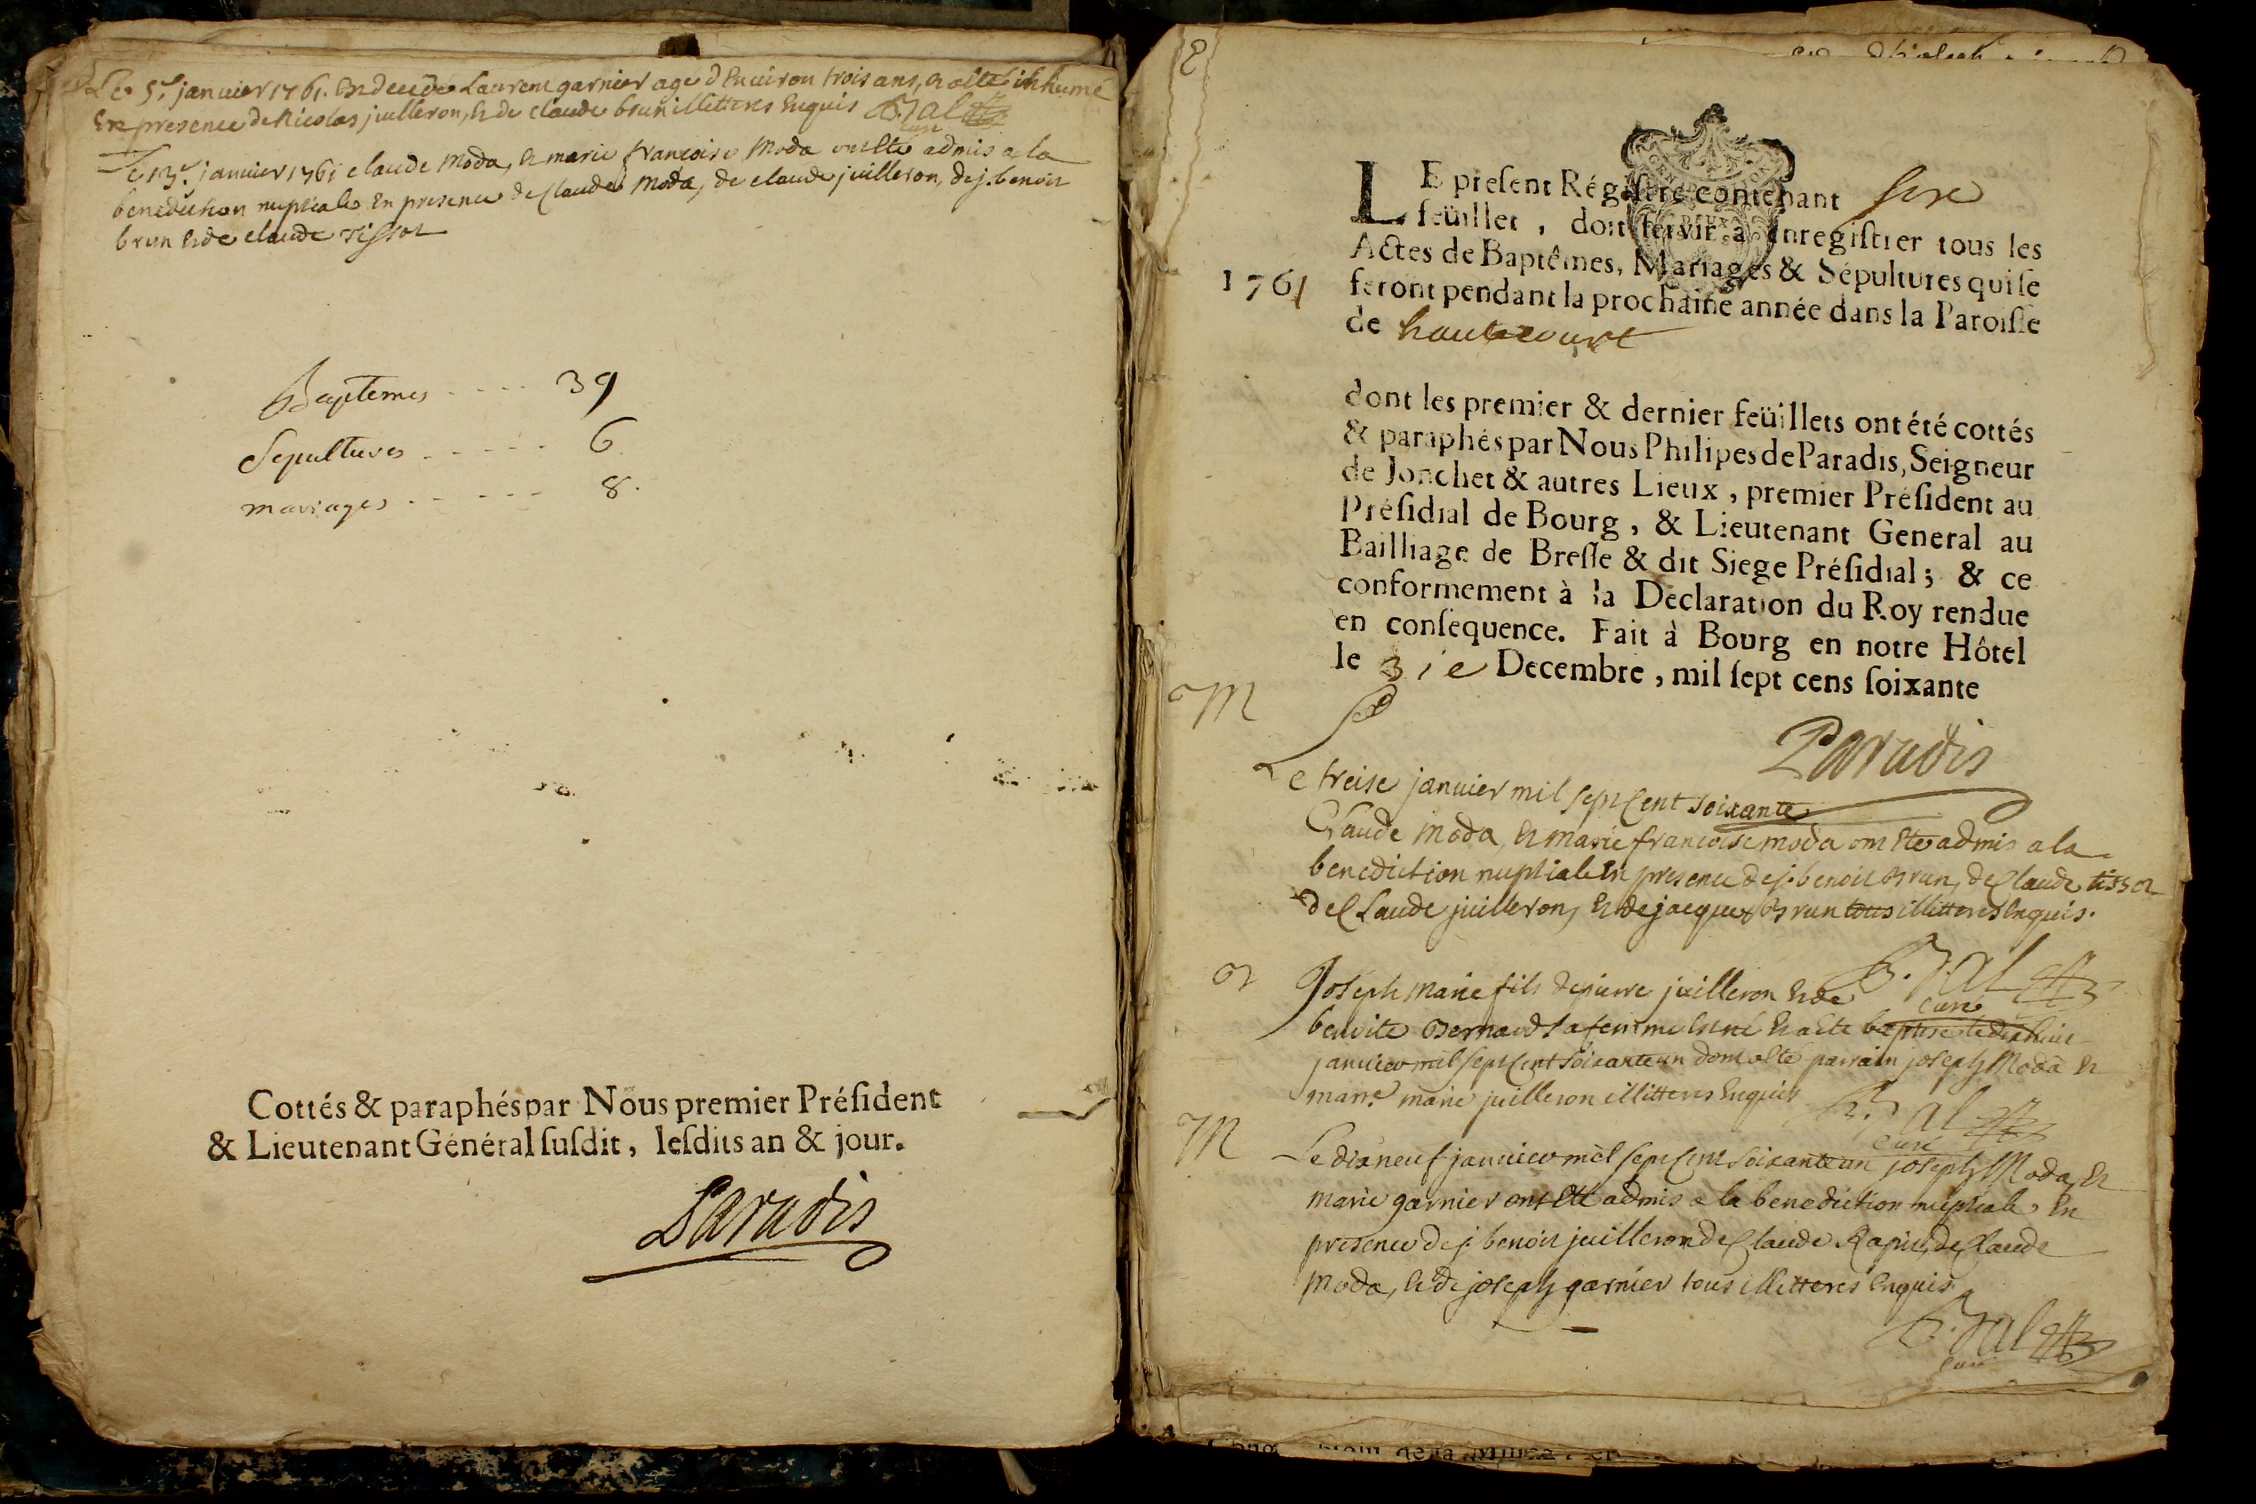 Le 5e janvier 1761. Est decedé Laurent garnier age d Environ trois ans, et a esté inhumé
En presence de Nicolas juilleron, et de claude brun illitteres Enquis B. Jal
curé
Le 13e janvier 1761 claude Moda, et marie francoise Moda ont esté admis a la
benediction nuptiale En presence de Claude Moda, de claude juilleron, de j. benoit
brun et de claude tissot
Baptemes - - - - 39
Sepultures - - - - - 6
mariages - - - - - 8.
Cottés & paraphés par Nous premier Président
& Lieutenant Général susdit, lesdits an & jour.
Paradis
LE present Régistre contenant
feüillet, doit servir à enregistrer tous les
Actes de Baptêmes, Mariages & Sépultures qui se
1761 feront pendant la prochaine année dans la Paroisse
de hautecourt
dont les premier & dernier feüillets ont été cottés
& paraphés par Nous Philipes de Paradis, Seigneur
de Jonchet & autres Lieux, premier Président au
Présidial de Bourg, & Lieutenant General au
Bailliage de Bresse & dit Siege Présidial; & ce
conformement à la Déclaration du Roy rendue
en consequence. Fait à Bourg en notre Hôtel
le 31e Decembre, mil sept cens soixante
M
Paradis
Le treise janvier mil sept Cent soixante
Claude Moda, et marie francoise moda ont Eté admis a la
benediction nuptiale En presence de j. benoit brun, de Claude tissot
de Claude juilleron, et de jacques brun tous illitteres Enquis.
B. Jal
curé
Joseph Marie fils de pierre juilleron et de
benoite Bernard sa femme Est né et a Eté baptisé le dixhuit
janvier mil sept Cent soixante un dont a esté parrain joseph Moda et
marr.e marie juilleron illitteres Enquis
B. Jal
curé
M Le dixneuf janvier mil sept Cent soixante un joseph Moda, et
marie garnier ont Eté admis a la benediction nuptiale, En
presence de j. benoit juilleron de Claude Rapin, de Claude
Moda, et de joseph garnier tous illitteres Enquis
B. Jal
curé